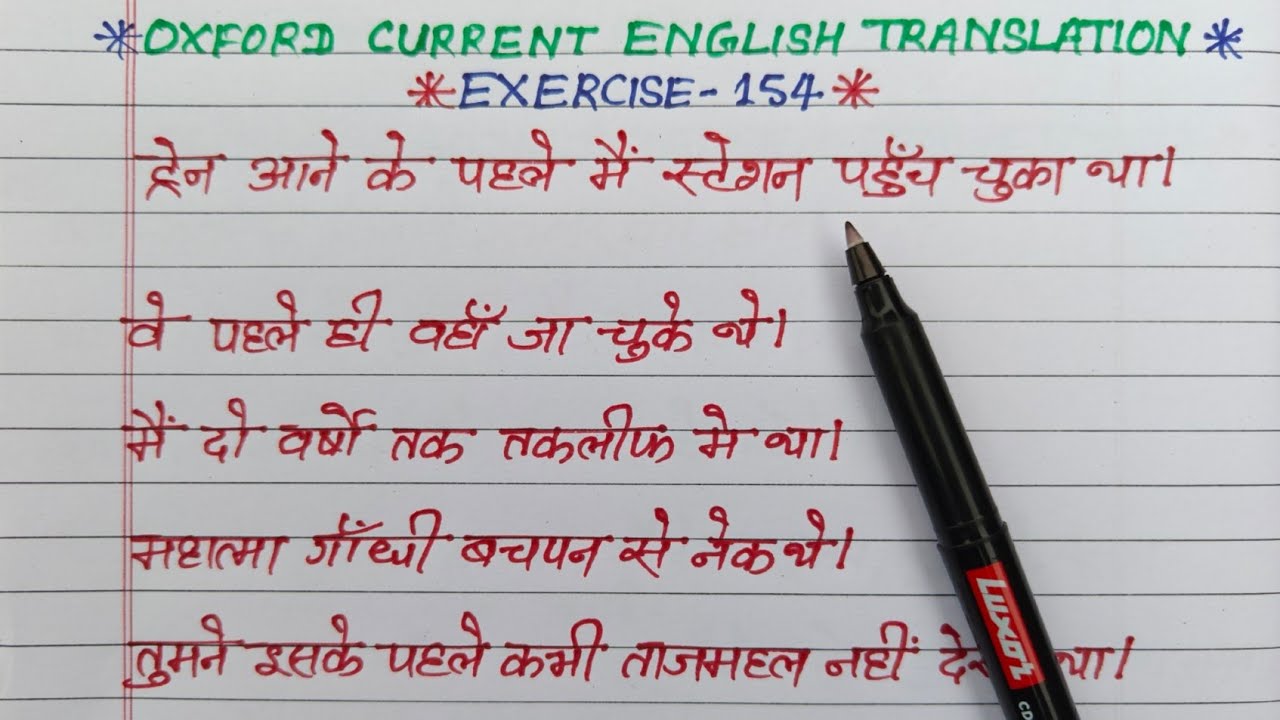 *OXFORD CURRENT ENGLISH TRANSLATION*
*EXERCISE-154*
ट्रेन आने के पहले मैं स्टेशन पहुँच चुका था।
वे पहले ही वहाँ जा चुके थे।
मैं दो वर्षो तक तकलीफ मे था।
महात्मा गाँधी बचपन से नेक थे।
तुमने इसके पहले कभी ताजमहल नहीं था।
Luxor